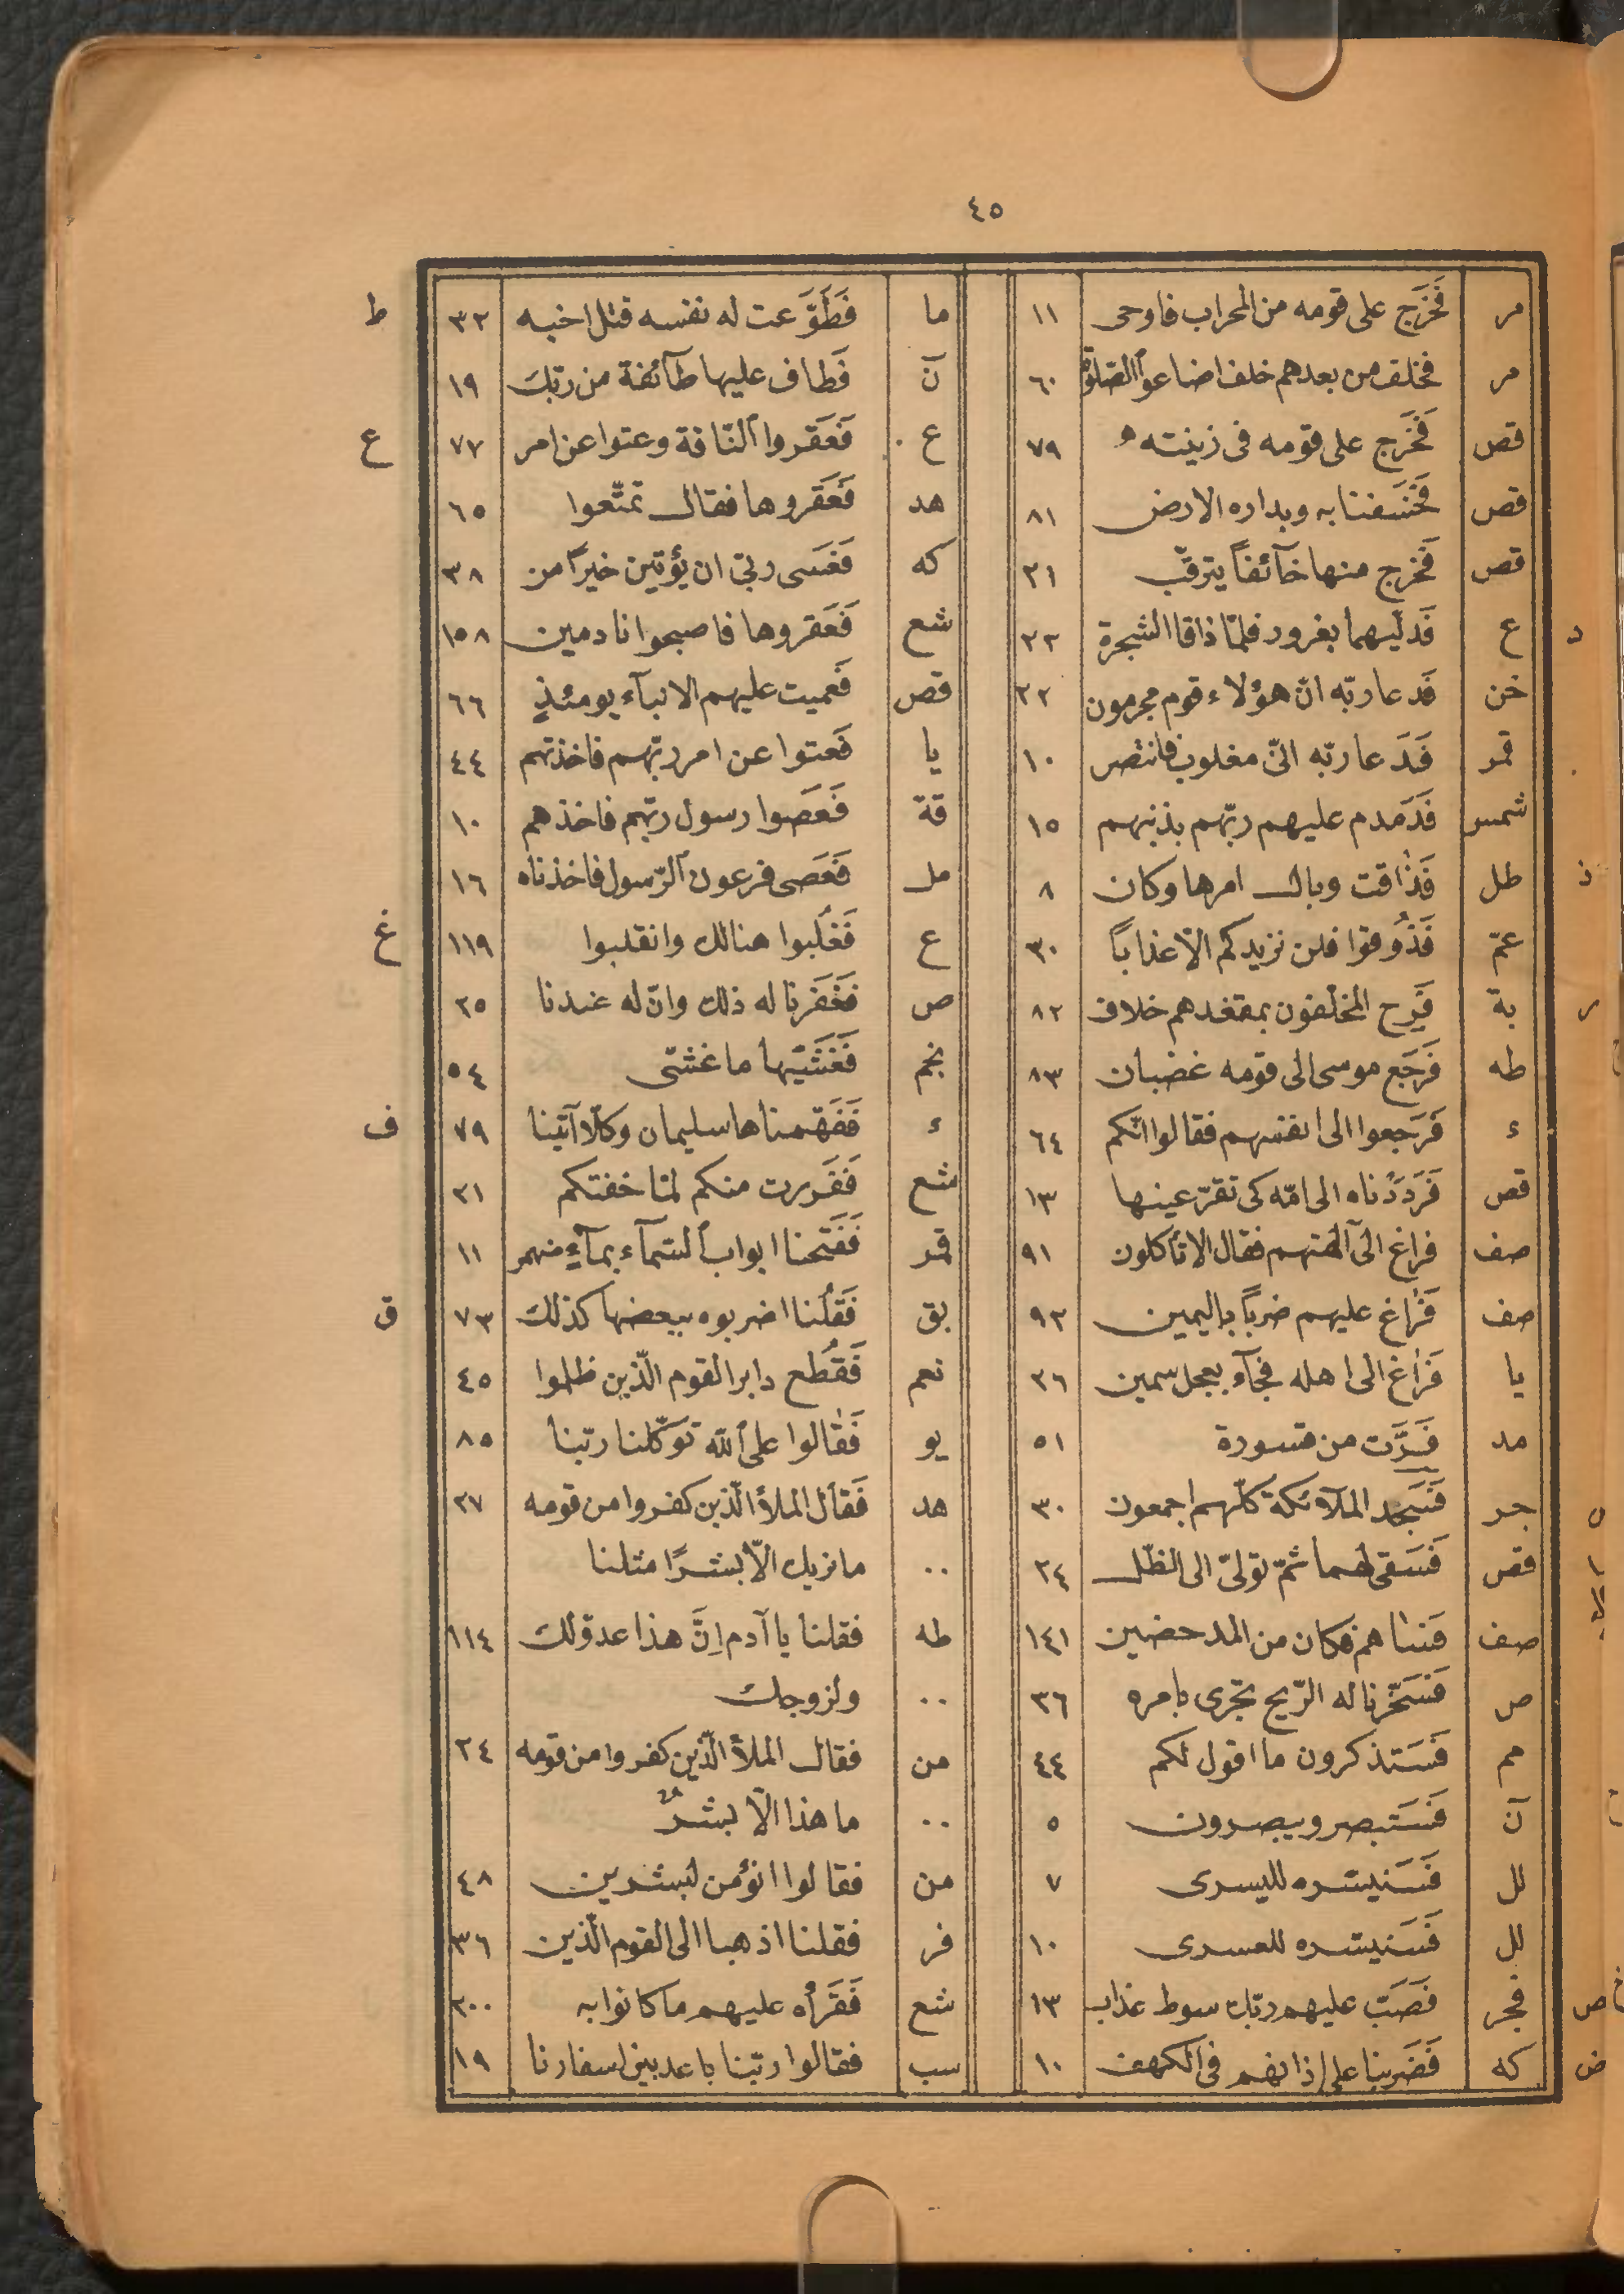 ٤٥
مر فَخَرَج على قومه من المحراب فاوحى ١١
مر فخلف من بعدهم خلف اضاعوا الصّلوة ٦٠
قص فَخَرَج على قومه فى زينته ٧٩
قص فَخَسَفنا به وبداره الارض ٨١
قص فَخَرج منها خآئفاً يترقّب ٢١
د ع فَدلّيهما بغرور فلمّا ذاقا الشجرة ٢٢
خن فَدعا ربّه انّ هؤلاء قوم مجرمون ٢٢
قمر فَدَعا ربّه انّى مغلوب فانتصر ١٠
شمس فَدَمدم عليهم ربّهم بذنبهم ١٥
ذ طل فَذاقت وبال امرها وكان ٨
عمّ فَذُوقوا فلن نزيدكم الّا عذاباً ٣٠
ر بة فَرِح المخلّفون بمقعدهم خلاف ٨٢
طه فَرَجَع موسى الى قومه غضبان ٨٣
ء فَرَجعوا الى انفسهم فقالوا انّكم ٦٤
قص فَرَدَدْناه الى امّه كى تقرّ عينها ١٣
صف فراغ الى آلهتهم فقال الا تأكلون ٩١
صف فَراغ عليهم ضرباً باليمين ٩٣
يا فَراغ الى اهله فجآء بعجل سمين ٢٦
مد فَرَّت من قسورة ٥١
س جر فَسَجَد الملآئكة كلّهم اجمعون ٣٠
قص فَسَقى لهما ثمّ تولىّ الى الظّل ٢٤
صف فساهم فكان من المدحضين ١٤١
ص فَسَخّرنا له الرّيح تجرى بامره ٣٦
مم فَسَتذكرون ما اقول لكم ٤٤
آن فَسَتبصر ويبصرون ٥
لل فَسَنيسّره لليسرى ٧
لل فَسَنيسّره للعسرى ١٠
ص فجر فَصَبّ عليهم ربّك سوط عذاب ١٣
ض كه فَضَربنا على اذانهم فى الكهف ١٠
ما فَطَوَّعت له نفسه قتل اخيه ٣٢ ط
آن فَطاف عليها طآئفة من ربّك ١٩
ع فَعَقروا النّاقة وعتوا عن امر ٧٧ ع
هد فَعَقروها فقال تمتّعوا ٦٥
كه فَعَسى ربّى ان يؤتين خيراً من ٣٨
شع فَعَقروها فاصبحوا نادمين ١٥٨
قص فَعميت عليهم الانبآء يومئذٍ ٦٦
يا فَعتوا عن امر ربّهم فاخذتهم ٤٤
قة فَعَصوا رسول ربّهم فاخذهم ١٠
مل فَعَصى فرعون الرّسول فاخذناه ١٦
ع فَغُلبوا هنالك وانقلبوا ١١٩ غ
ص فَغَفرنا له ذلك وانّ له عندنا ٢٥
نجم فَغَشّيٰها ما غشّى ٥٤
ء فَفَهّمناها سليمان وكلّا آتينا ٧٩ ف
شع فَفَررت منكم لمّا خفتكم ٢١
قمر فَفَتحنا ابواب السّمآء بمآءٍ منهمر ١١
بق فَقلُنا اضربوه ببعضها كذلك ٧٣ ق
نعم فَقُطع دابر القوم الّذين ظلموا ٤٥
يو فَقالوا على الله توكّلنا ربّنا ٨٥
هد فَقال الملأ الّذين كفروا من قومه ٢٧
.. ما نريك الّا بشرًا مثلنا
طه فقلنا يا آدم اِنَّ هذا عدوّ لك ١١٤
.. ولزوجك
من فقال الملأ الّذين كفروا من قومه ٢٤
.. ما هذا الّا بشرٌ
من فقالوا انؤمن لبشرين ٤٨
فر فقلنا اذهبا الى القوم الّذين ٣٦
شع فَقَرأه عليهم ما كانوا به ٢٠٠
سب فقالوا ربّنا باعد بين اسفارنا ١٩